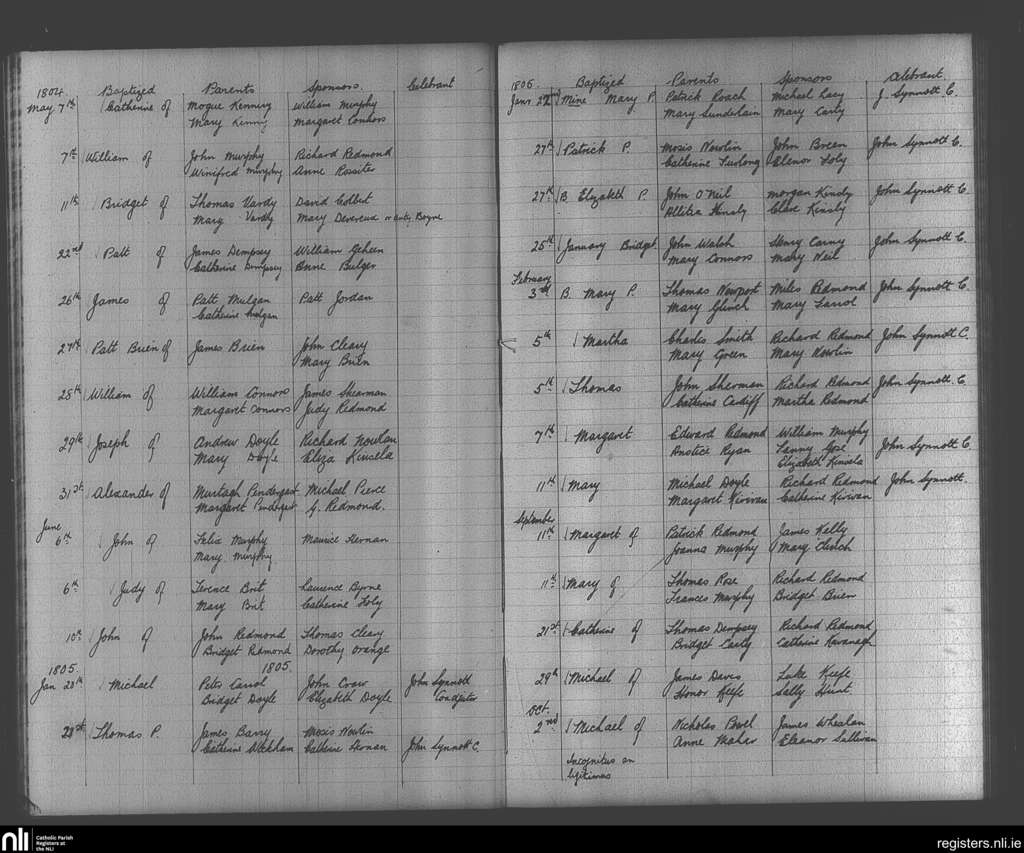 1804. Baptized Parents Sponsors. Celebrant
May 7th Catherine of Mogue Kenning William Murphy
Mary Kenning Margaret Connors
7th William of John Murphy Richard Redmond
Winifred Murphy Anne Rossiter
11th Bridget of Thomas Vardy David Colbert
Mary Vardy Mary Devereux Boyne
22nd Patt of James Dempsey William Geheen
Catherine Dempsey Anne Bulger
26th James of Patt Mulgan Patt Jordan
Catherine Mulgan
27th Patt Brien of James Brien John Cleary
Mary Brien
28th William of William Connors James Shearman
Margaret Connors Judy Redmond
29th Joseph of Andrew Doyle Richard Nowlan
Mary Doyle Eliza Kinsela
31st Alexander of Murtagh Pendergast Michael Pierce
Margaret Pendergast G. Redmond.
June
6th John of Felix Murphy Maurice Hernan
Mary Murphy
6th Judy of Terence Brit Laurence Byrne
Mary Brit Catherine Foly
10th John of John Redmond Thomas Cleary
Bridget Redmond Dorothy Orange
1805. 1805.
Jan 20th Michael Peter Carrol John Crow John Synnott
Bridget Doyle Elizabeth Doyle Coadjutor
28th Thomas P. James Barry Mosis Nowlin
Catherine Wickham Catherine Hernan John Synnott C.
1805. Baptized Parents Sponsors Celebrant.
Janr 22nd Mine Mary P. Patrick Roach Michael Lacy J. Synnott C.
Mary Sunderlain Mary Carty
27th Patrick P. Mosis Nowlin John Breen John Synnott C.
Catherine Furlong Elenor Foly
27th B. Elizabeth P. John O'Neil Morgan Kinsly John Synnott C.
Allitia Kinsly Clare Kinsly
25th January Bridget John Walsh Henry Carny John Synnott C.
Mary Connors Mary Neil
February
3rd B. Mary P. Thomas Newport Miles Redmond John Synnott C.
Mary Glinch Mary Farrol
5th Martha Charles Smith Richard Redmond John Synnott C.
Mary Green Mary Nowlin
5th Thomas John Sherman Richard Redmond John Synnott. C.
Catherine Cardiff Martha Redmond
7th Margaret Edward Redmond William Murphy
Anstice Ryan Fanny Gose John Synnott C.
Elizabeth Kinsela
11th Mary Michael Doyle Richard Redmond John Synnott.
Margaret Kirivan Catherine Kirivan
September
11th Margaret of Patrick Redmond James Kelly
Joanna Murphy Mary Clinch
11th Mary of Thomas Rose Richard Redmond
Frances Murphy Bridget Brien
21st Catherine of Thomas Dempsey Richard Redmond
Bridget Carty Catherine Kavanagh
29th Michael of James Daves Luke Keefe
Honor Keefe Sally Hunt
Oct.
2nd Michael of Nicholas Powel James Whealan
Anne Maher Eleanor Sullivan
Incognitus an
legitimus
nli Catholic Parish
Registers at
the NLI
registers.nli.ie